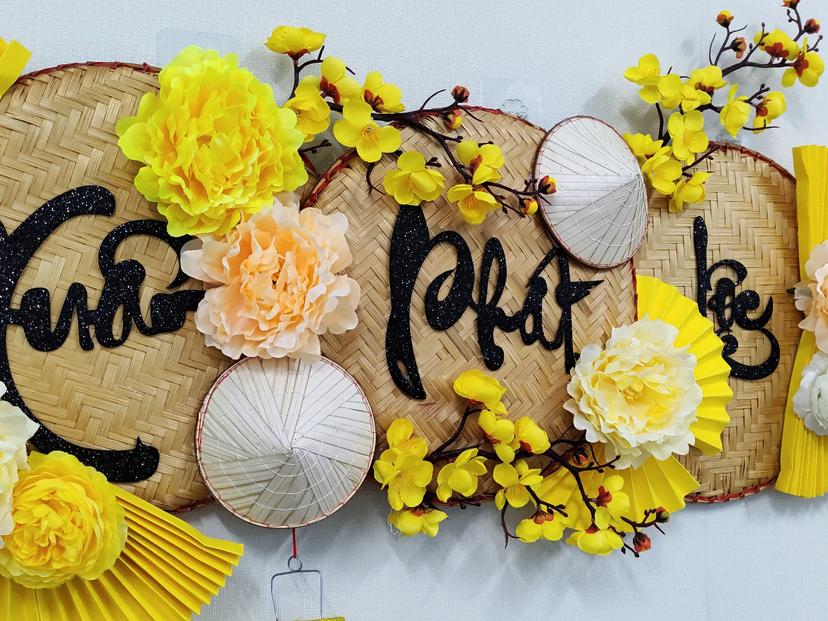 Xuân Phát lộc